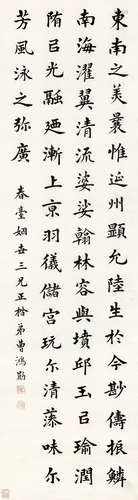 東南之美曩惟延州顯允陸生於今尠儔振鱗
南海濯翼清流婆娑翰林容與墳邱玉㠯瑜潤
隋㠯光融廼漸上京羽儀儲宮玩尔清藻味尔
芳風泳之弥廣
春臺姻世三兄正楷弟曹鴻勛